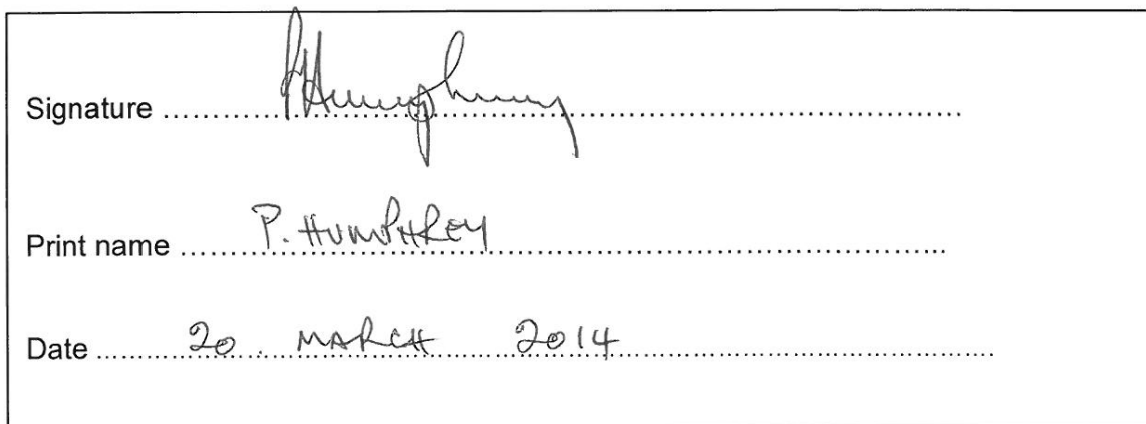 Signature ........ PHumphrey ........
Print name ........ P. HUMPHREY ........
Date ........ 20 MARCH 2014 ........